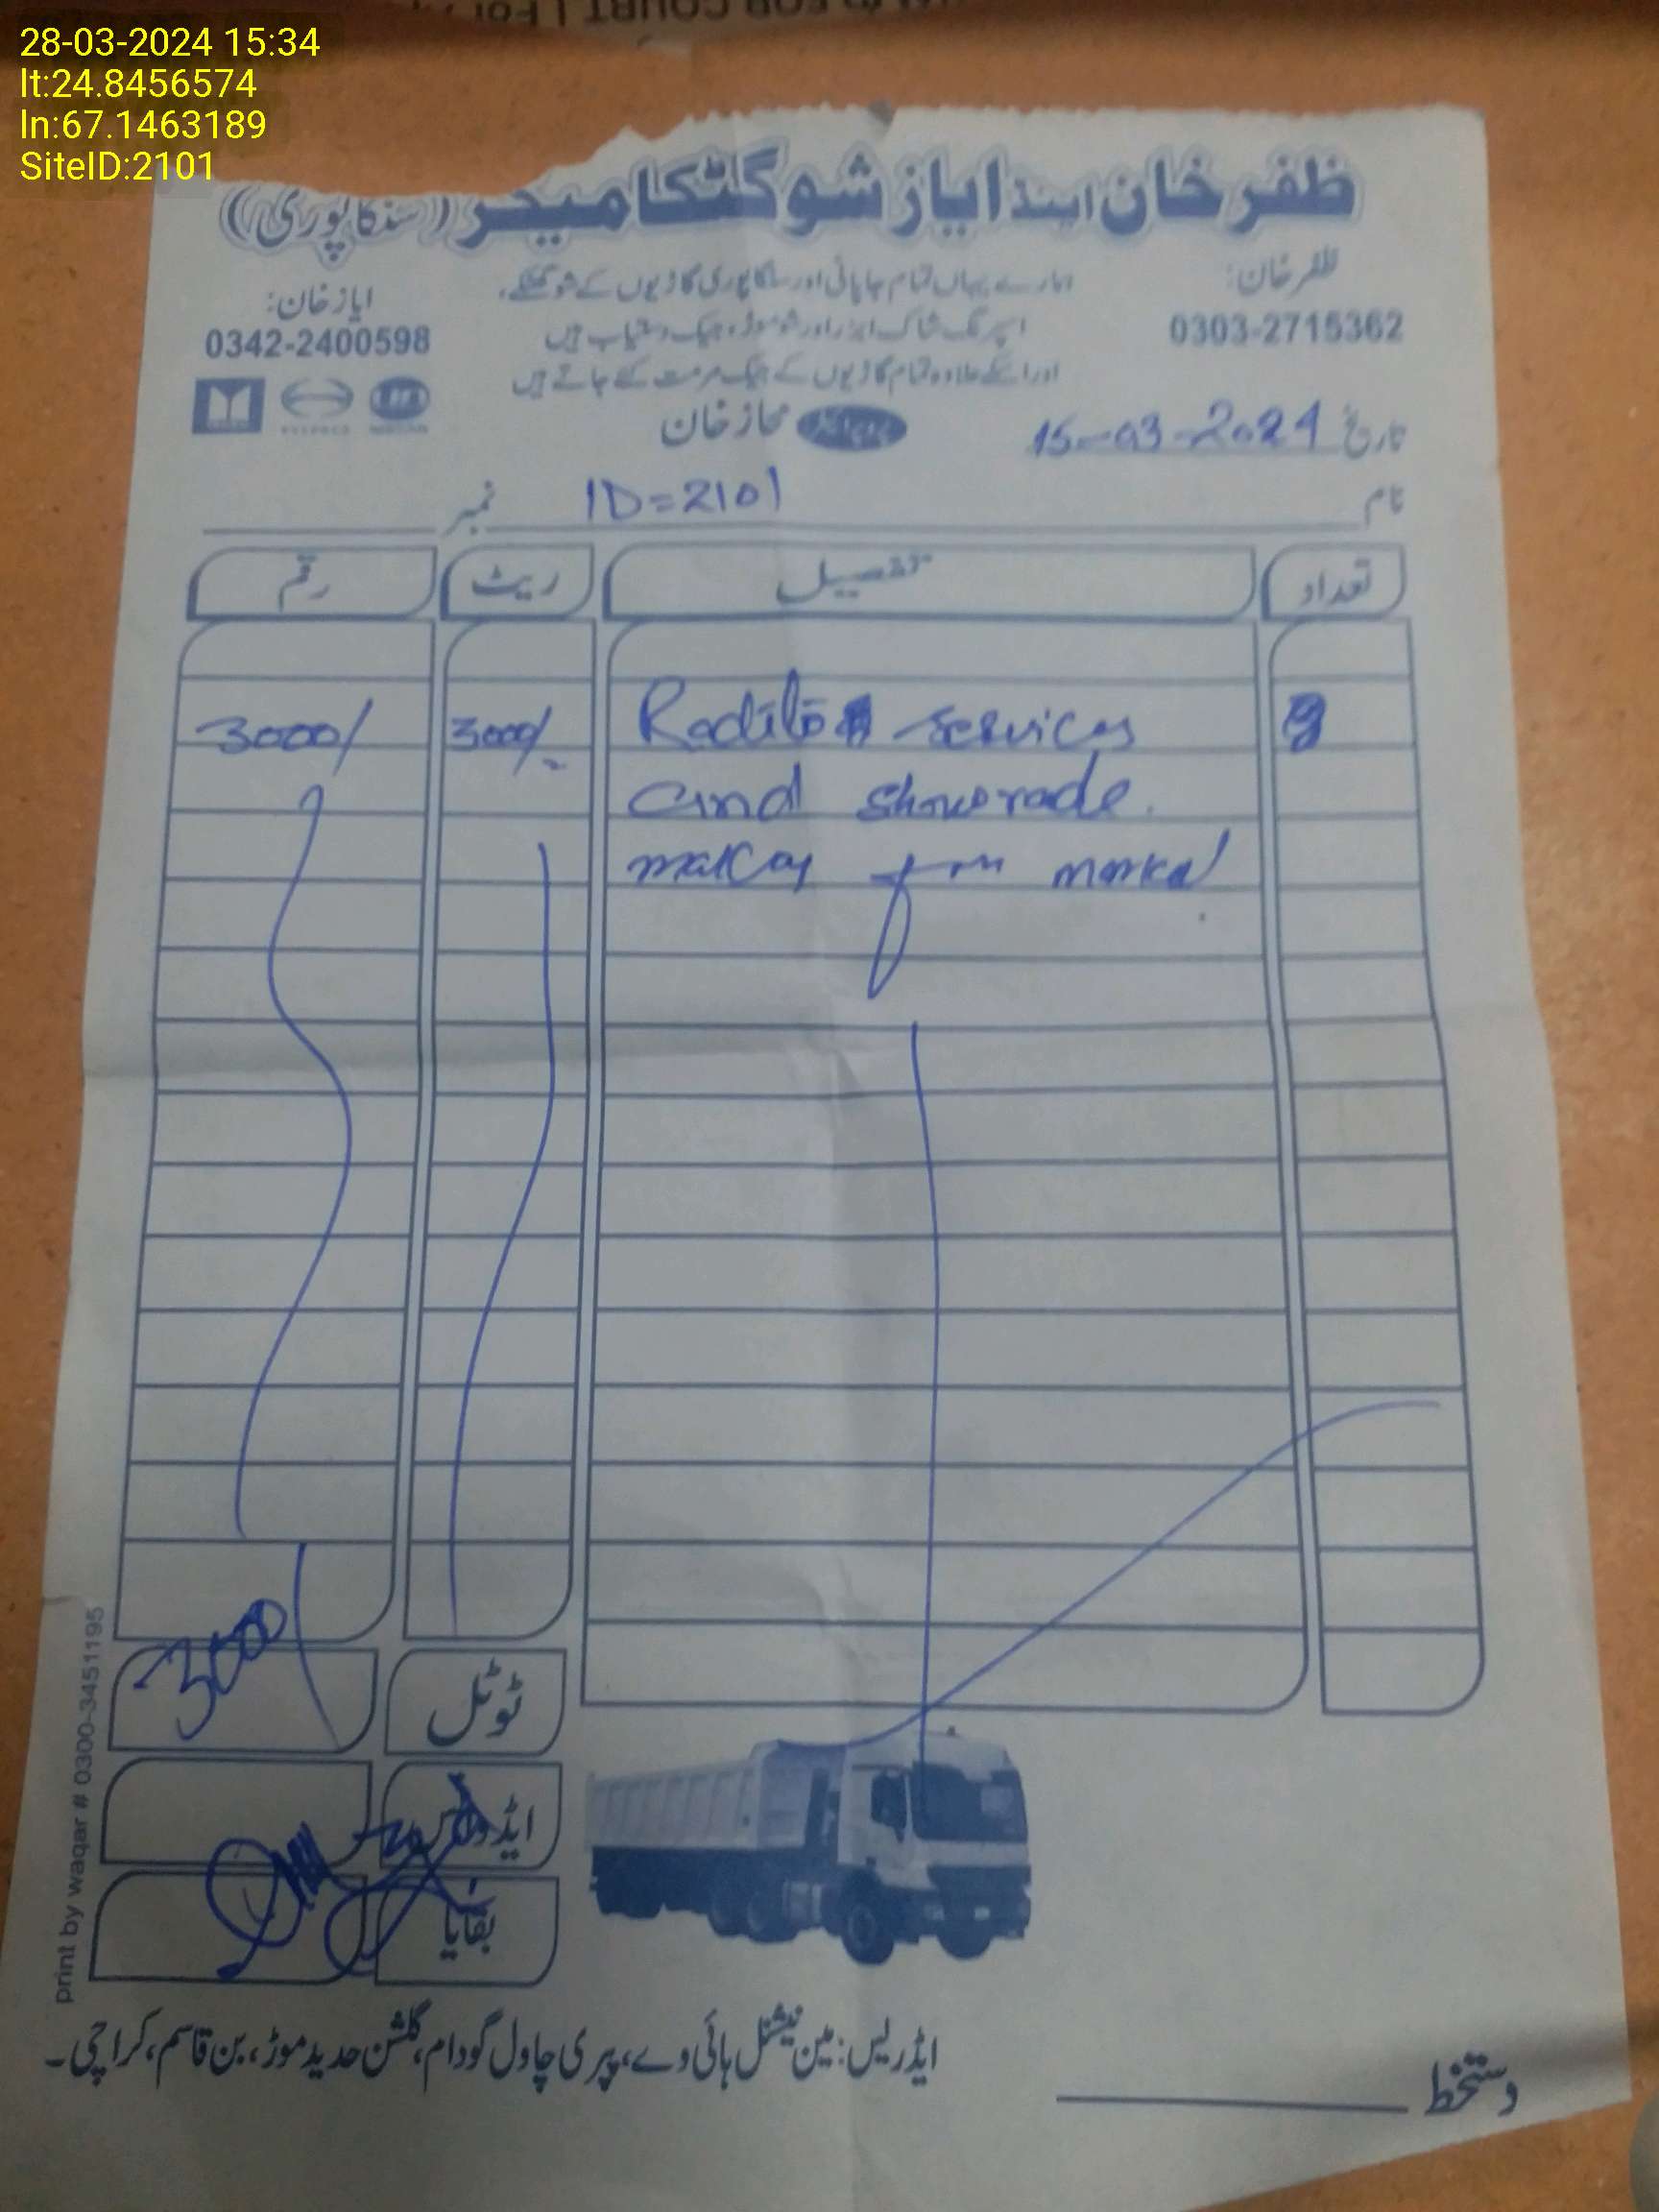 28-03-2024 15:34
lt:24.8456574
ln:67.1463189
SiteID:2101
FOR COURT | For
ظفر خان اینڈ ایاز شو گٹکا میکر (سنگاپوری)
ظفر خان:
0303-2715362
ایاز خان:
0342-2400598
ہمارے یہاں تمام جاپانی اور سنگاپوری گاڑیوں کے شو گٹکے،
اسپرنگ شاک ابزر اور شو موٹر، جیک دستیاب ہیں
اور اسکے علاوہ تمام گاڑیوں کے جیک مرمت کئے جاتے ہیں
خان
تاریخ 15-03-2024
نام ID=2101 نمبر
تعداد تفصیل ریٹ رقم
services 3000/- 3000/
and
from
ٹوٹل 3000
ایڈوانس
بقایا
print by waqar # 0300-3451195
ایڈریس: مین نیشنل ہائی وے، پپری چاول گودام، گلشن حدید موڑ، بن قاسم، کراچی۔
دستخط